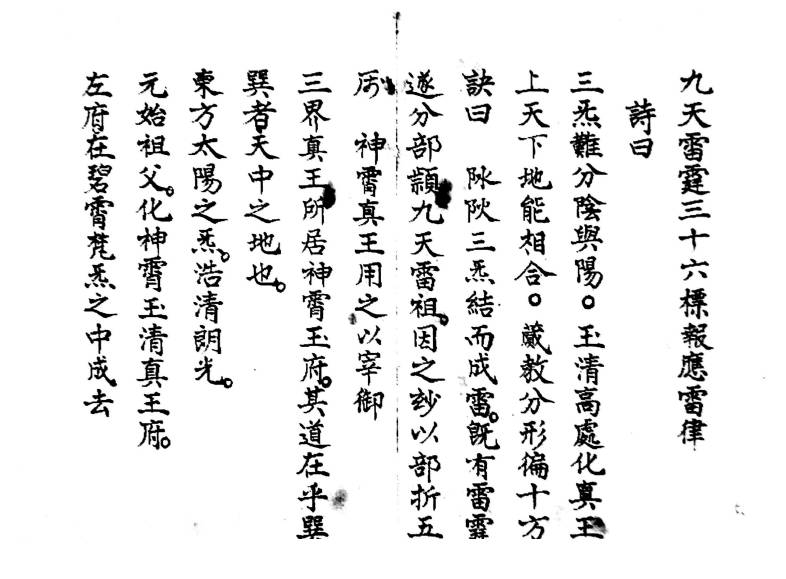 九天雷霆三十六標報應雷律
詩曰
三炁難分陰與陽。玉清高處化真王
上天下地能相合。蔵教分形徧十方
訣曰 阥阦三炁結而成雷。既有雷霆
遂分部𩔖九天雷祖。因之玅以部折五
神霄真王用之以宰御
三界真王所居神霄玉府。其道在乎巽
巽者天中之地也。
東方太陽之炁。浩清朗光。
元始祖父。化神霄玉清真王府。
左府在碧霄梵炁之中成去